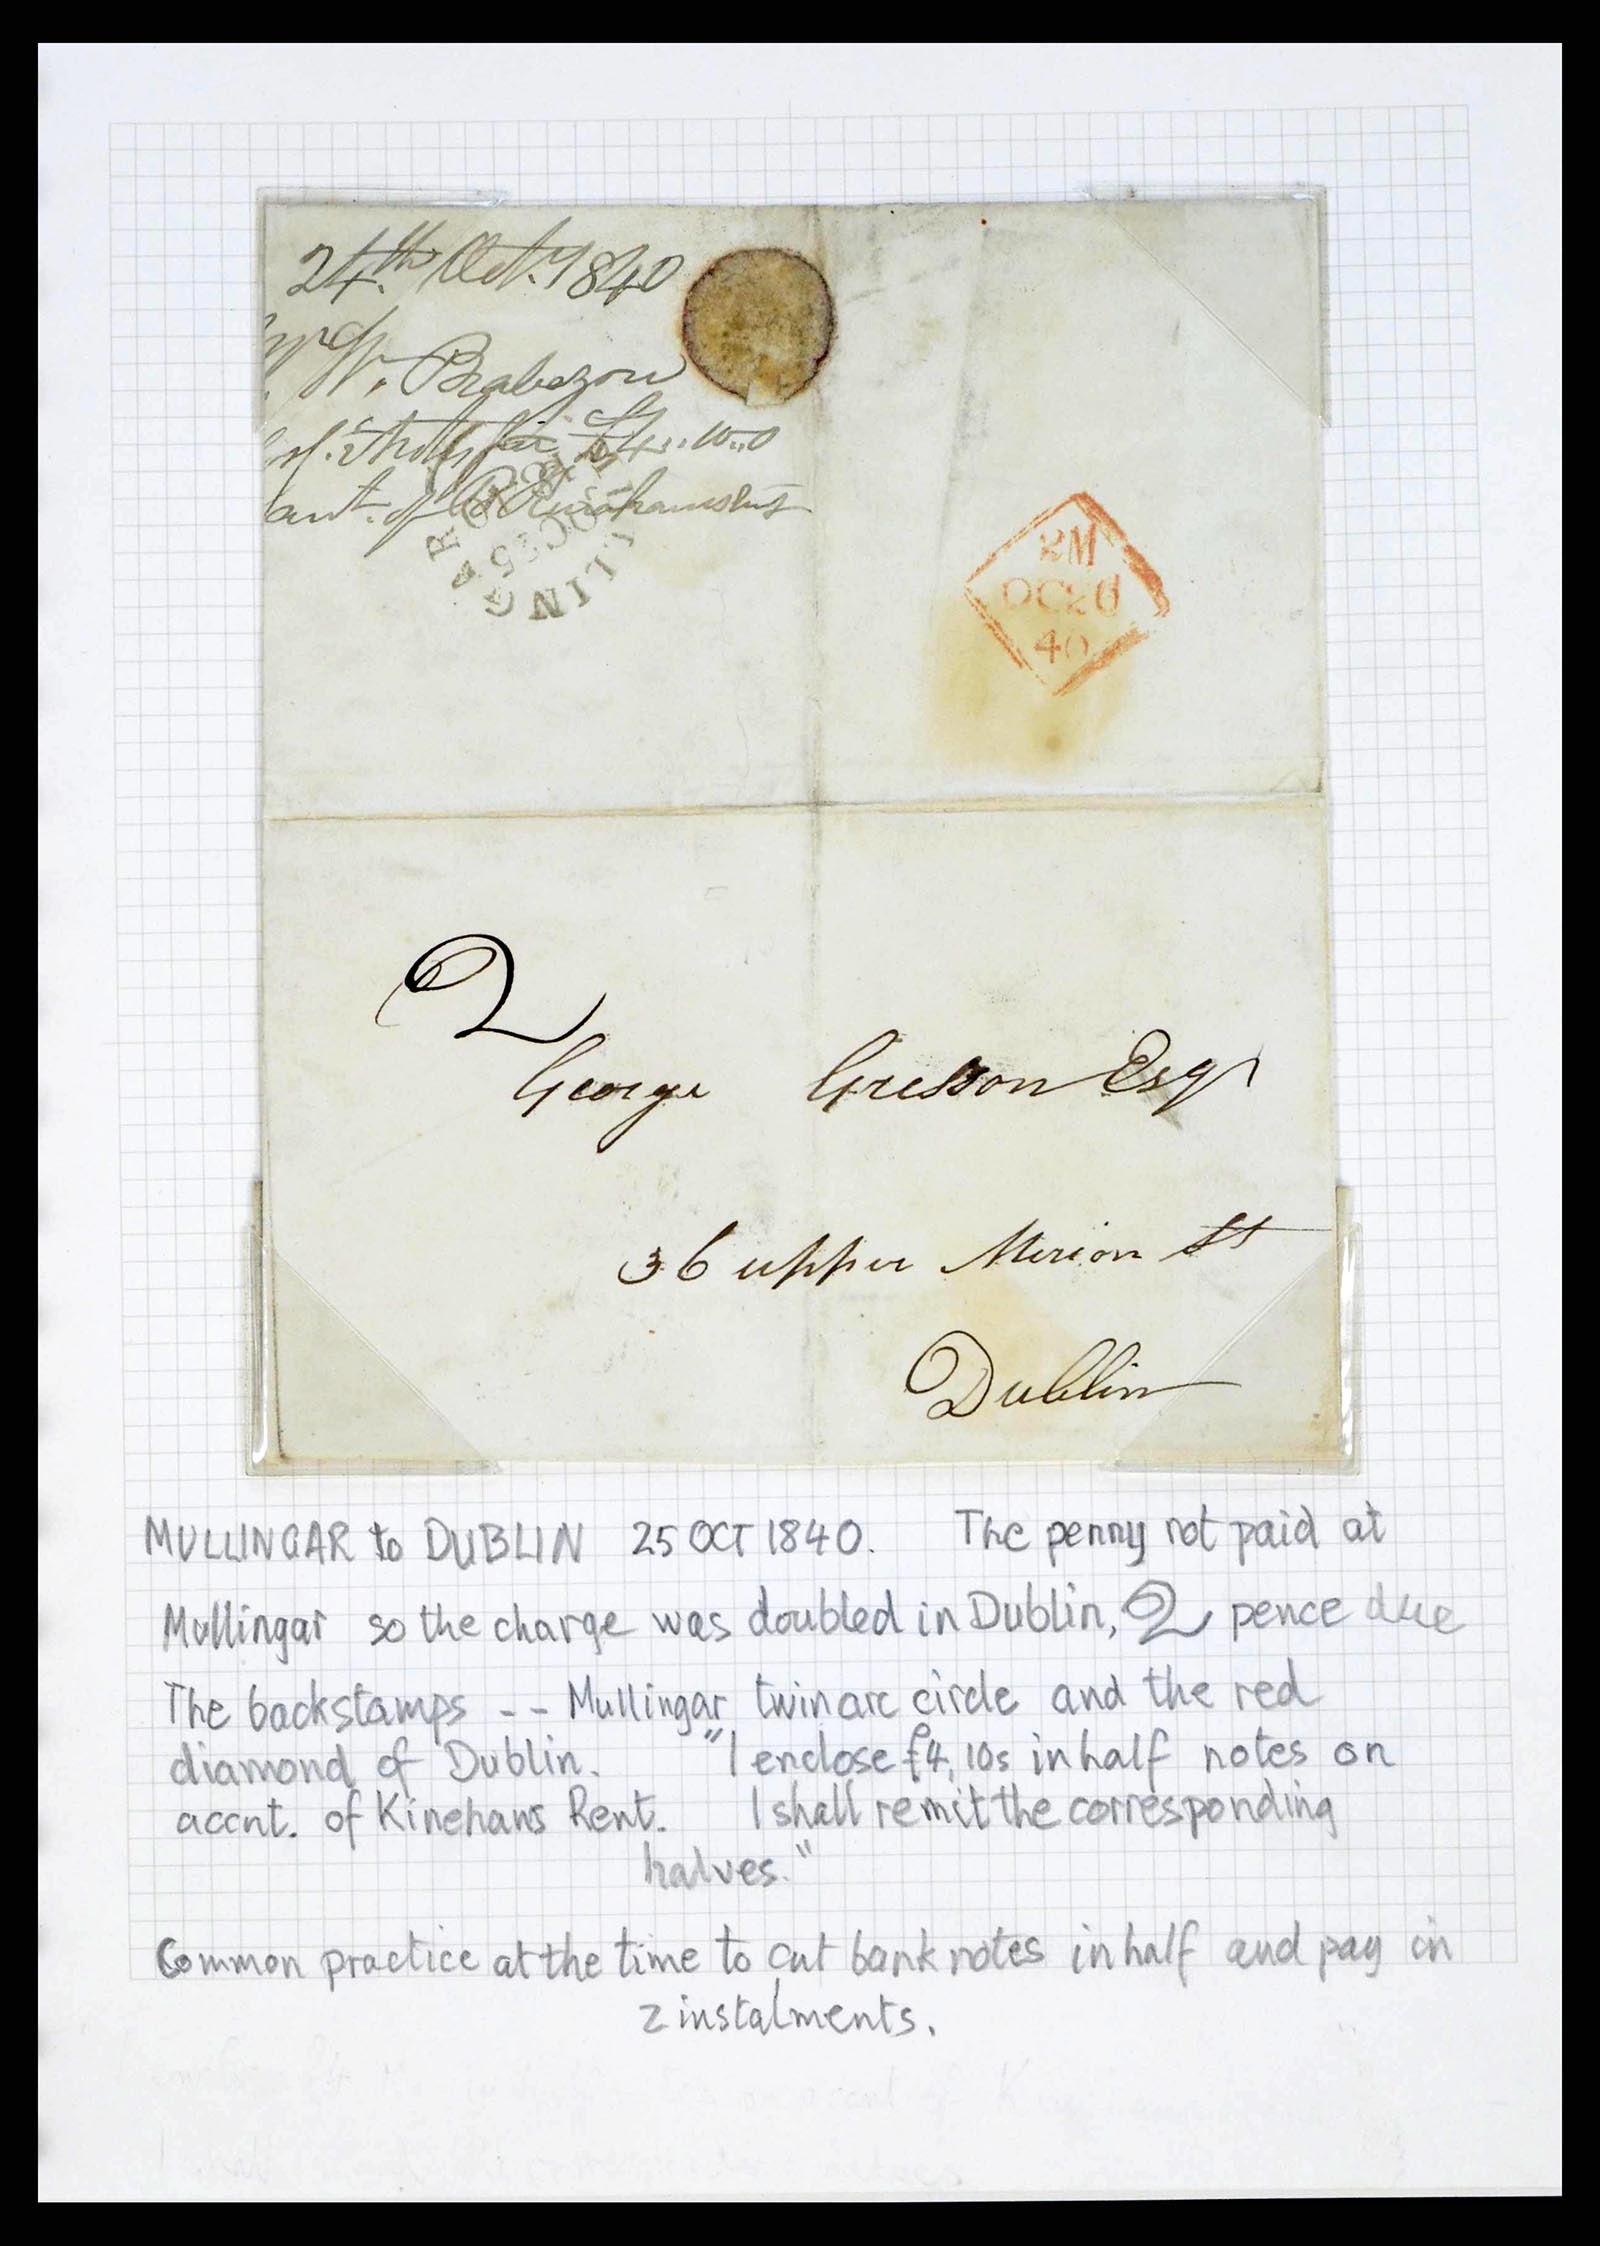 24th Oct. 1840
W. Brabazon
£4.. 10..0
of
MULLINGAR
OC 25
2M
OC26
40
2
George Gresson Esqr
36 upper Merion St
Dublin
MULLINGAR to DUBLIN 25 OCT 1840. The penny not paid at
Mullingar so the charge was doubled in Dublin, 2 pence due
The backstamps -- Mullingar twin arc circle and the red
diamond of Dublin. "I enclose £4, 10s in half notes on
accnt. of Kinehans Rent. I shall remit the corresponding
halves."
Common practice at the time to cut bank notes in half and pay in
2 instalments.